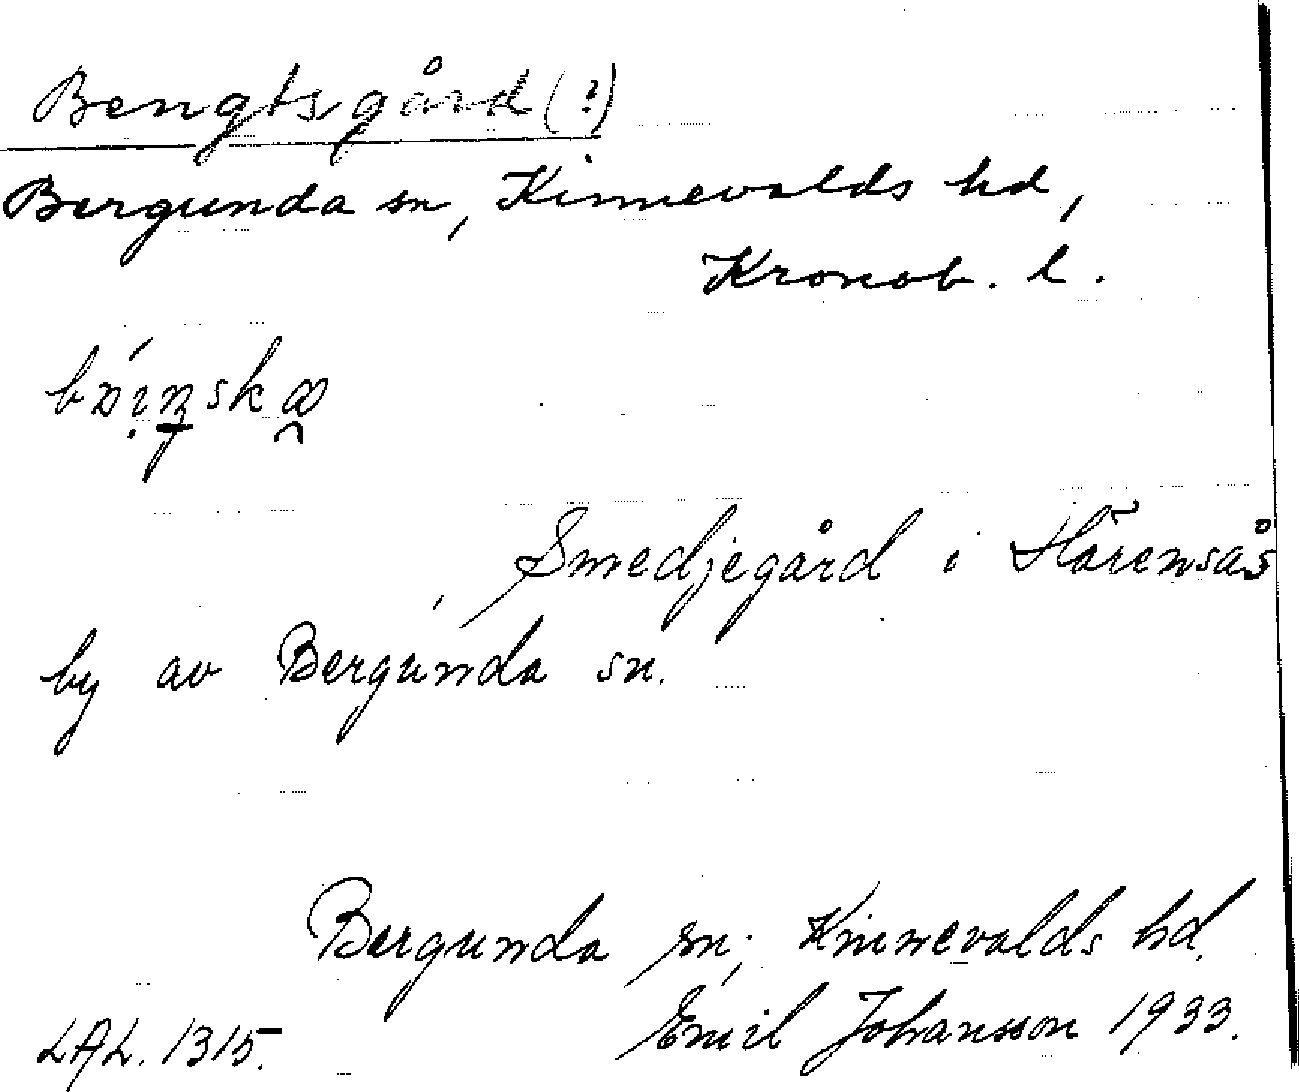 Bengtsgård (?)
Bergunda sn, Kinnevalds hd,
Kronob. l.
Smedjegård i Härensås
by av Bergunda sn.
Bergunda sn; Kinnevalds hd.
LAL. 1315. Emil Johansson 1933.